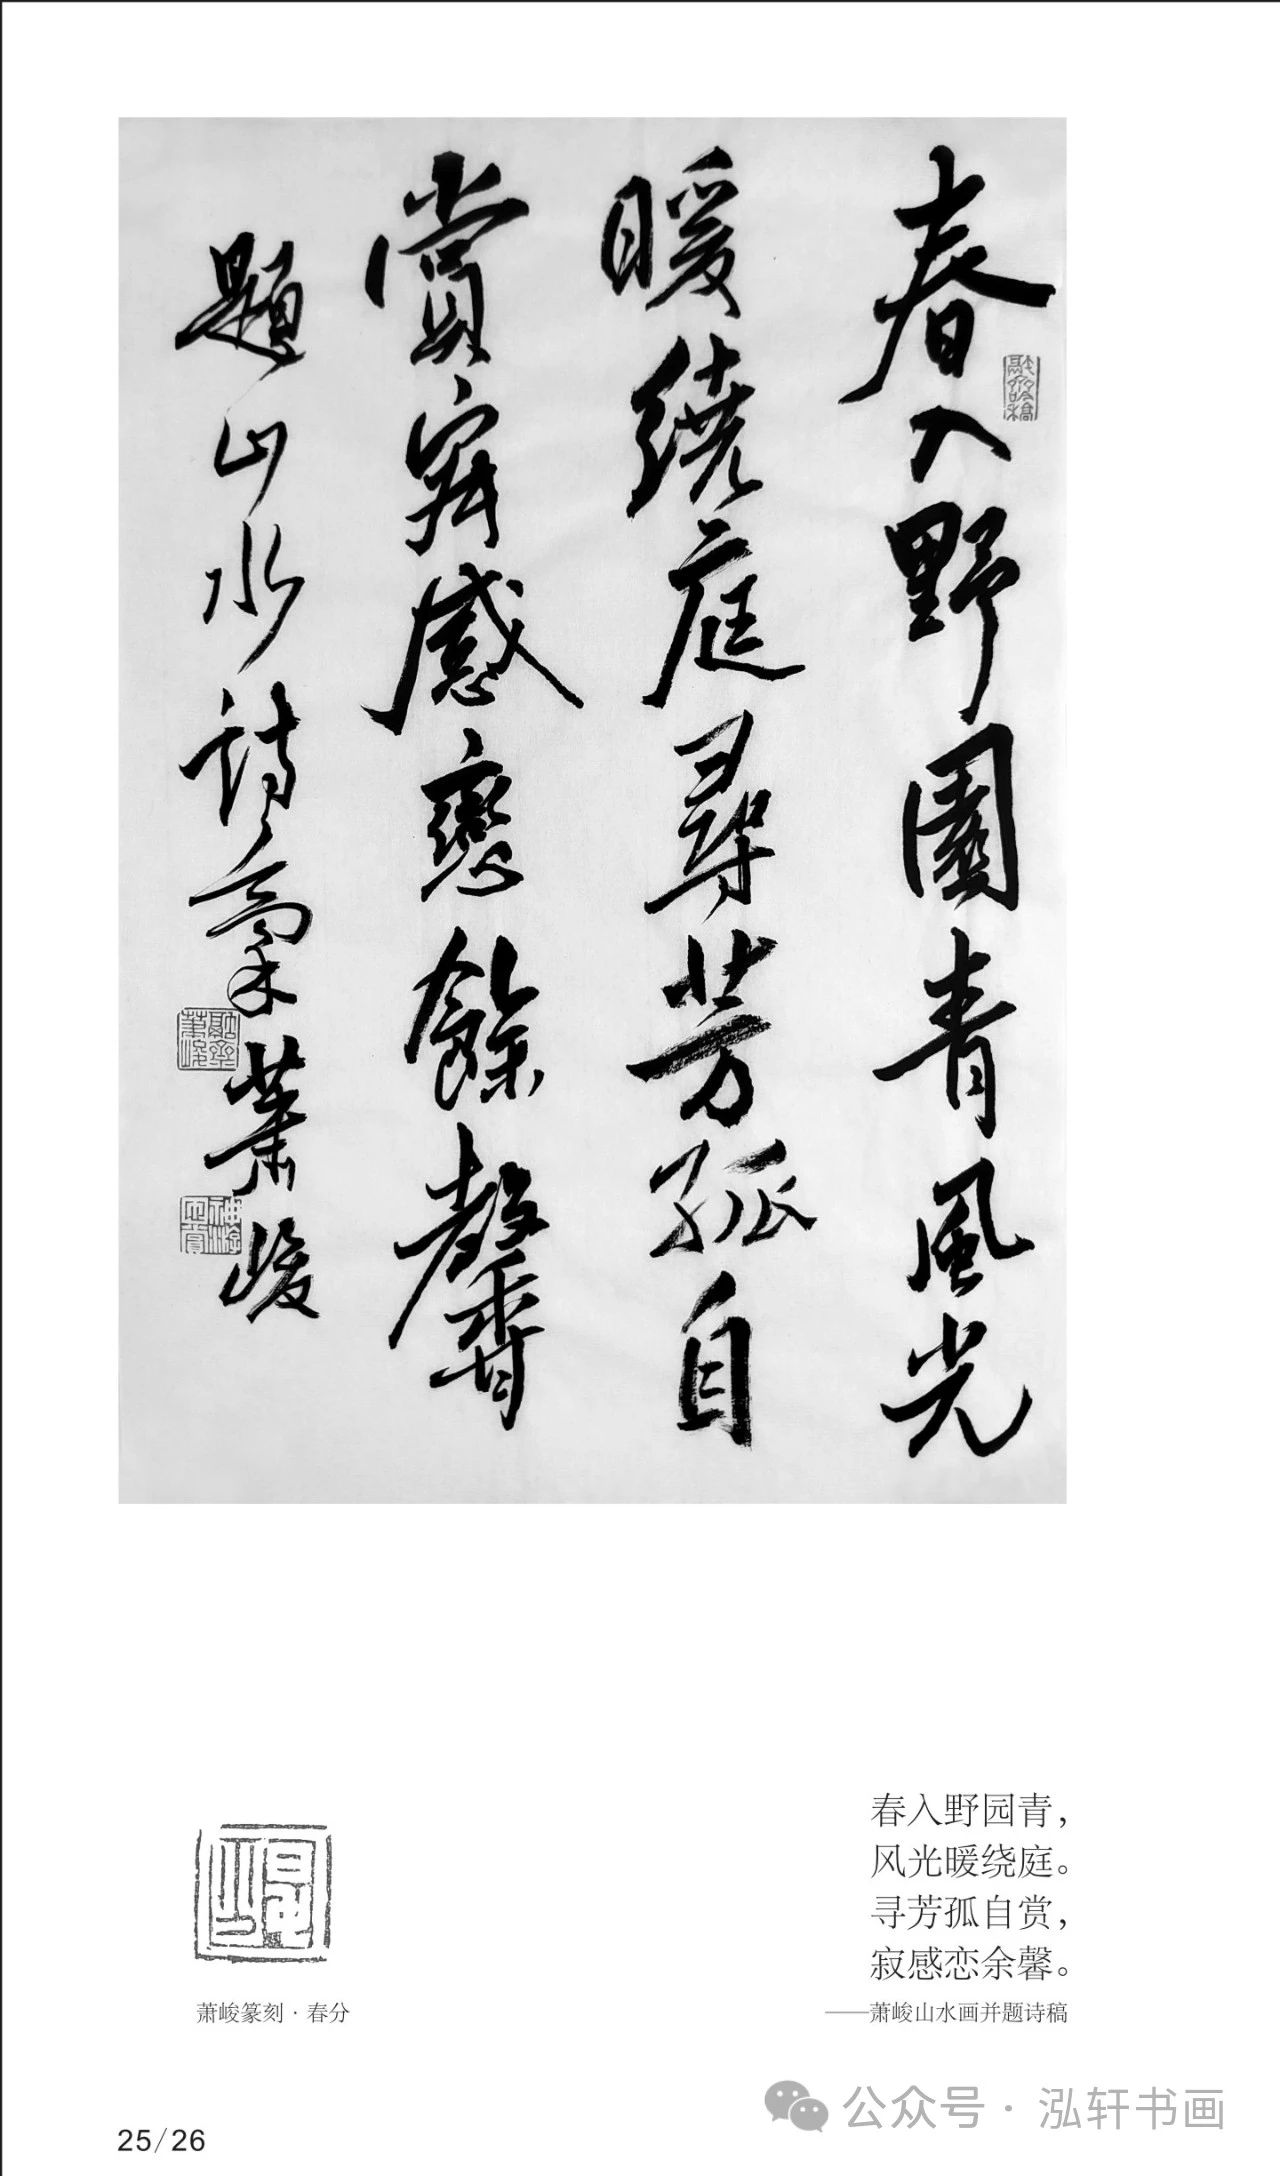 春入野園青風光
暖繞庭尋芳孤自
賞寂感戀餘馨
題山水詩稾 蕭峻
春入野园青，
风光暖绕庭。
寻芳孤自赏，
寂感恋余馨。
——萧峻山水画并题诗稿
萧峻篆刻·春分
25/26
公众号·泓轩书画